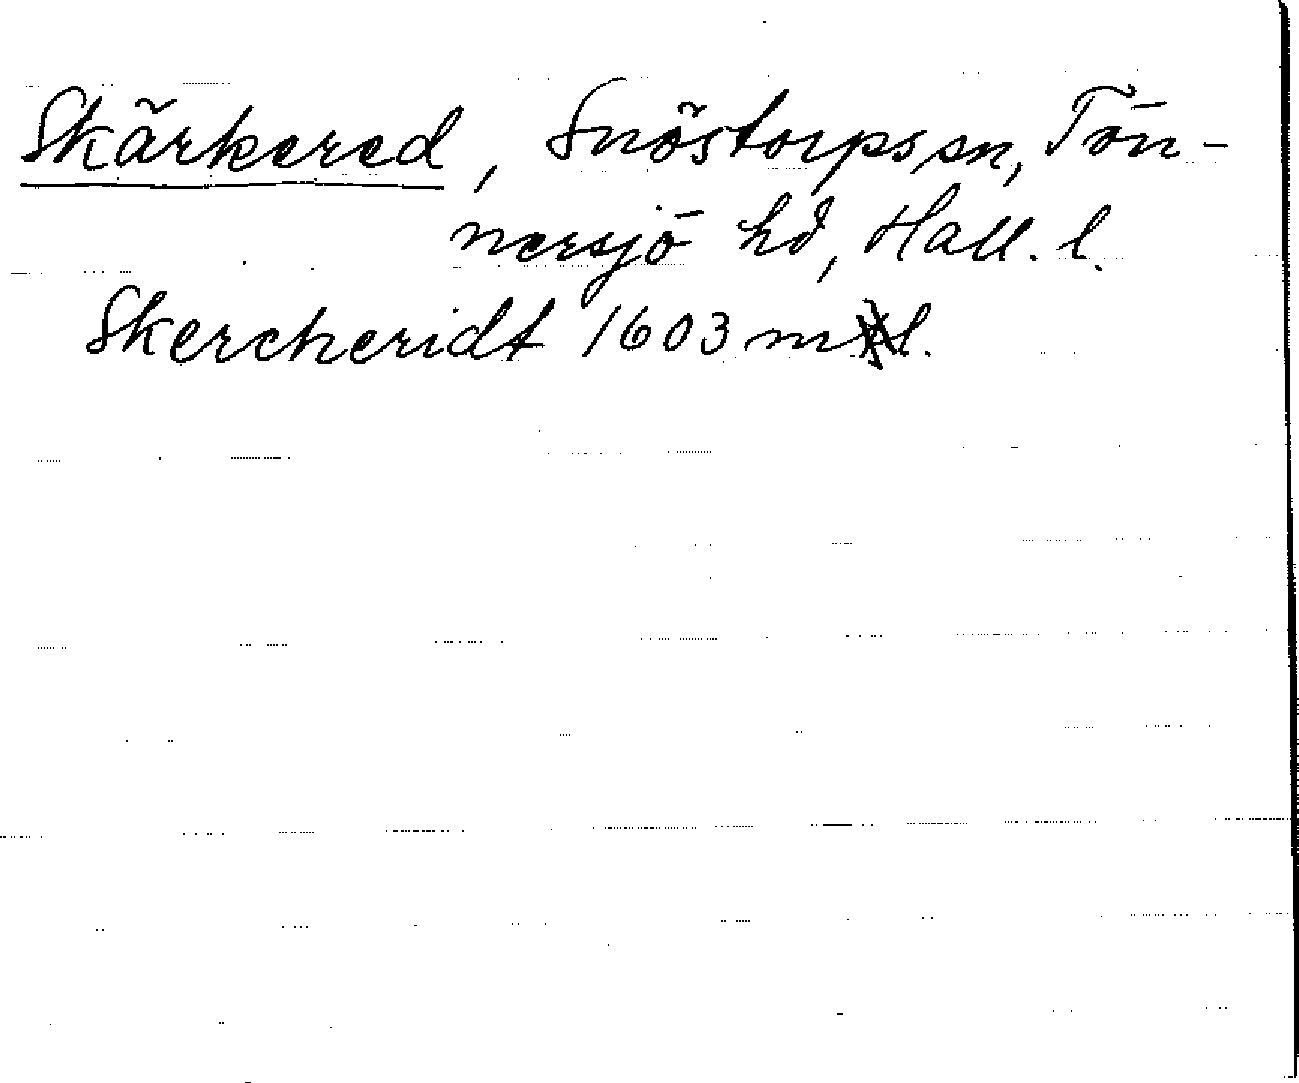 Skärkered, Snöstorps sn, Tön-
nersjö hd, Hall. l.
Skercheridt 1603 ml.